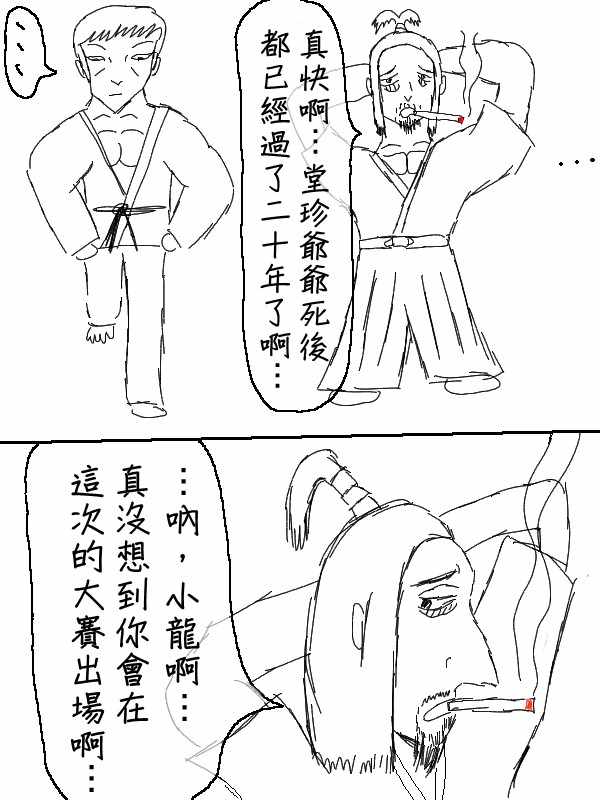 真快啊…堂珍爺爺死後
都已經過了二十年了啊…
…
…吶，小龍啊…
真沒想到你會在
這次的大賽出場啊…